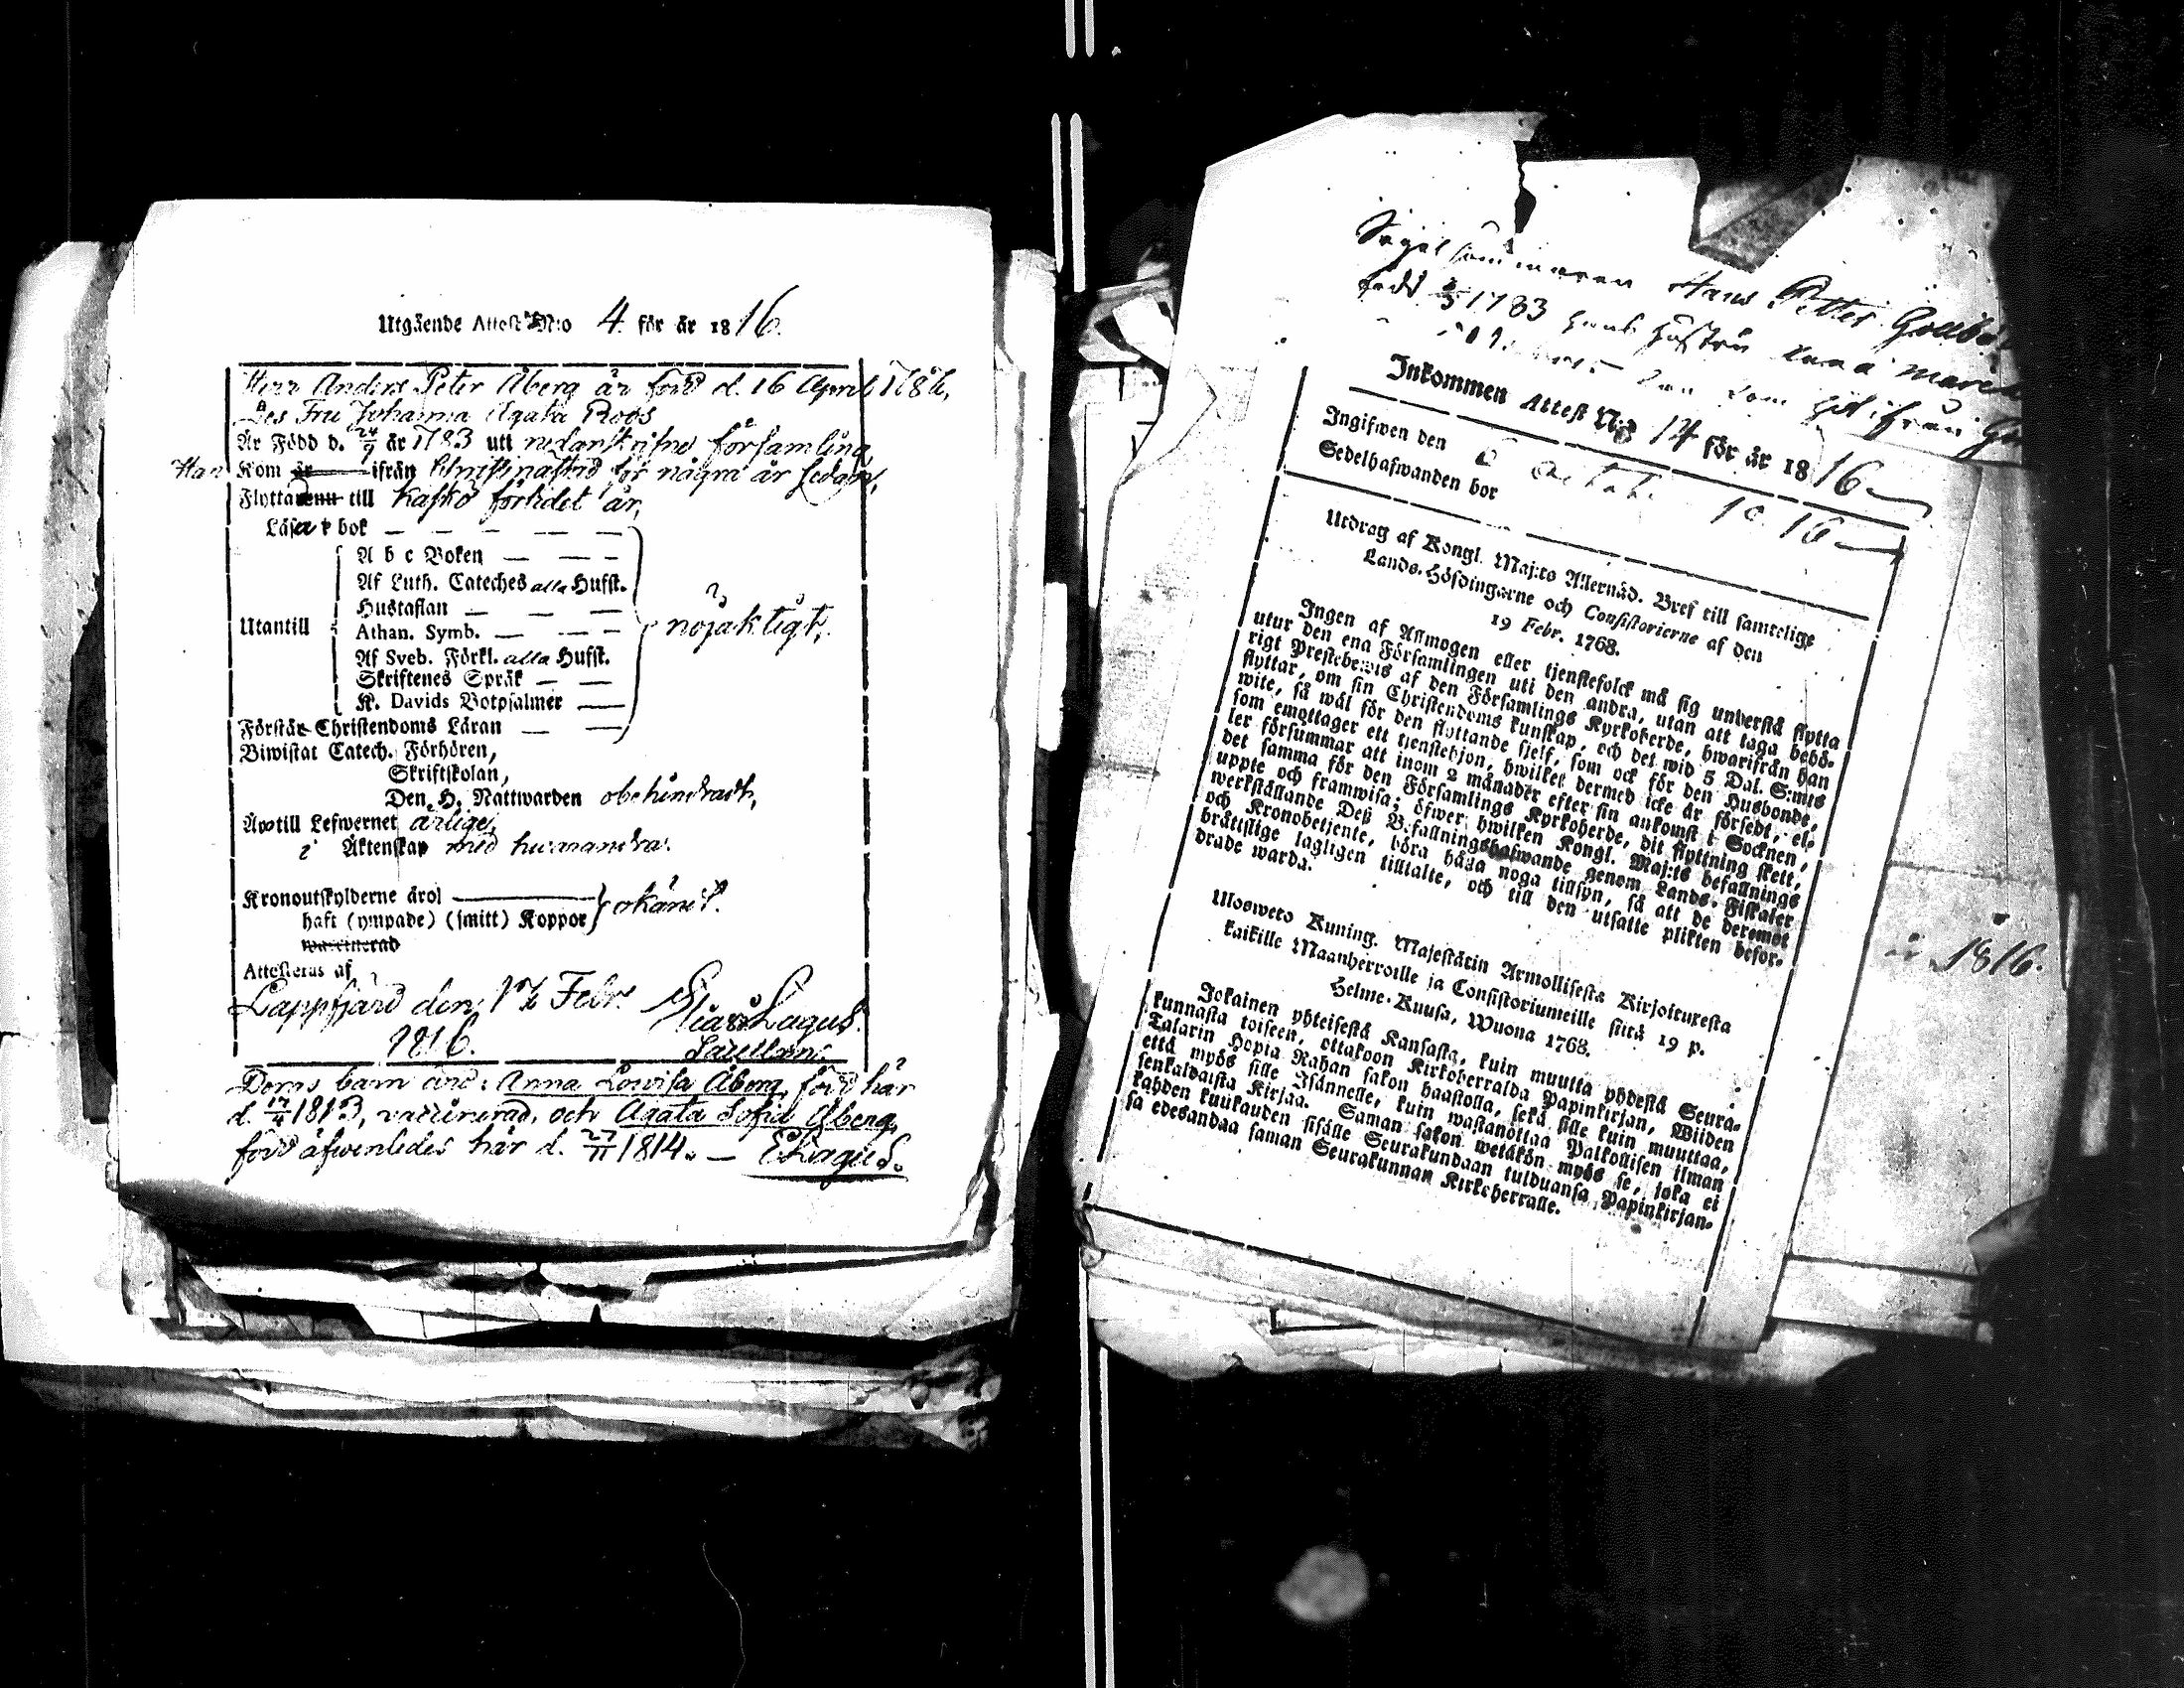 Utgående Attest N:o 4. för år 1816.
Herr Anders Peter Åberg är född d. 16 April 1786,
Des Fru Johanna Agata Roos
Är Född d. 24/9 år 1783 utt nedanskrifne församling,
Han Kom är ifrån Christinæstad för några år sedan,
Flytta till Kaskö förledet år,
Läsa i bok — — — — —
A b c Boken — — —
Af Luth. Cateches alla Hufst.
Hustaflan — — —
Utantill Athan. Symb. — — — nöjaktigt,
Af Sveb. Förkl. alla Hufst.
Skriftenes Språk — —
K. Davids Botpsalmer —
Förstår Christendoms Läran — —
Biwistat Catech. Förhören,
Skriftskolan,
Den H. Nattwarden obehindradt,
Äro till Lefwernet ärlige,
i Äktenskap med hwarandra.
Kronoutskylderne ärol
haft (ympade) (smitt) Koppor okändt.
vaccinerad
Attesteras af
Lappfjärd den 17/2 Febr. Elias Lagus.
1816. Sacellan:
Deras barn äro: Anna Lowisa Åberg, född här
d. 17/4 1813, vaccinerad, och Agata Sofia Åberg,
född äfwenledes här d. 27/11 1814. — E Lagus.
Segelsömmaren Hans Petter
född 1783 hans hustru maria
som hit ifrån
Inkommen Attest N:o 14 för år 1816
Ingifwen den 1816
Sedelhafwanden bor
Utdrag af Kongl. Maj:ts Allernåd. Bref till samtelige
Lands-Höfdingarne och Consistorierne af den
19 Febr. 1768.
Ingen af Allmogen eller tjenstefolck må sig understå flytta
utur den ena Församlingen uti den andra, utan att taga behö-
rigt Prestebewis af den Församlings Kyrkoherde, hwarifrån han
flyttar, om sin Christendoms kunskap, och det wid 5 Dal. S:mts
wite, så wäl för den flyttande sjelf, som ock för den Husbonde,
som emottager ett tjenstehjon, hwilket dermed icke är försedt, el-
ler försummar att inom 2 månader efter sin ankomst i Socknen,
det samma för den Församlings Kyrkoherde, dit flyttning skett,
uppte och framwisa; öfwer hwilken Kongl. Maj:ts befallnings
werkställande Deß Befallningshafwande genom Lands-Fiskaler
och Kronobetjente, böra hafwa noga tillsyn, så att de deremot
bråttslige lagligen tilltalte, och till den utsatte plikten befor-
drade warda.
Ulosweto Kuning. Majestätin Armollisesta Kirjoituxesta
kaikille Maanherroille ja Consistoriumeille siitä 19 p.
Helme-Kuusa, Wuona 1768.
Jokainen yhteisestä Kansasta, kuin muutta yhdestä Seura-
kunnasta toiseen, ottakoon Kirkoherralda Papinkirjan, Wiiden
Talarin Hopia Rahan sakon haastolla, sekä sille kuin muuttaa,
että myös sille Isännelle, kuin wastanottaa Palkollisen ilman
senkaldaista Kirjaa. Saman sakon wetäkön myös se, joka ei
kahden kuukauden sisälle Seurakundaan tulduansa Papinkirjan-
sa edesandaa saman Seurakunnan Kirkcherralle.
år 1816.